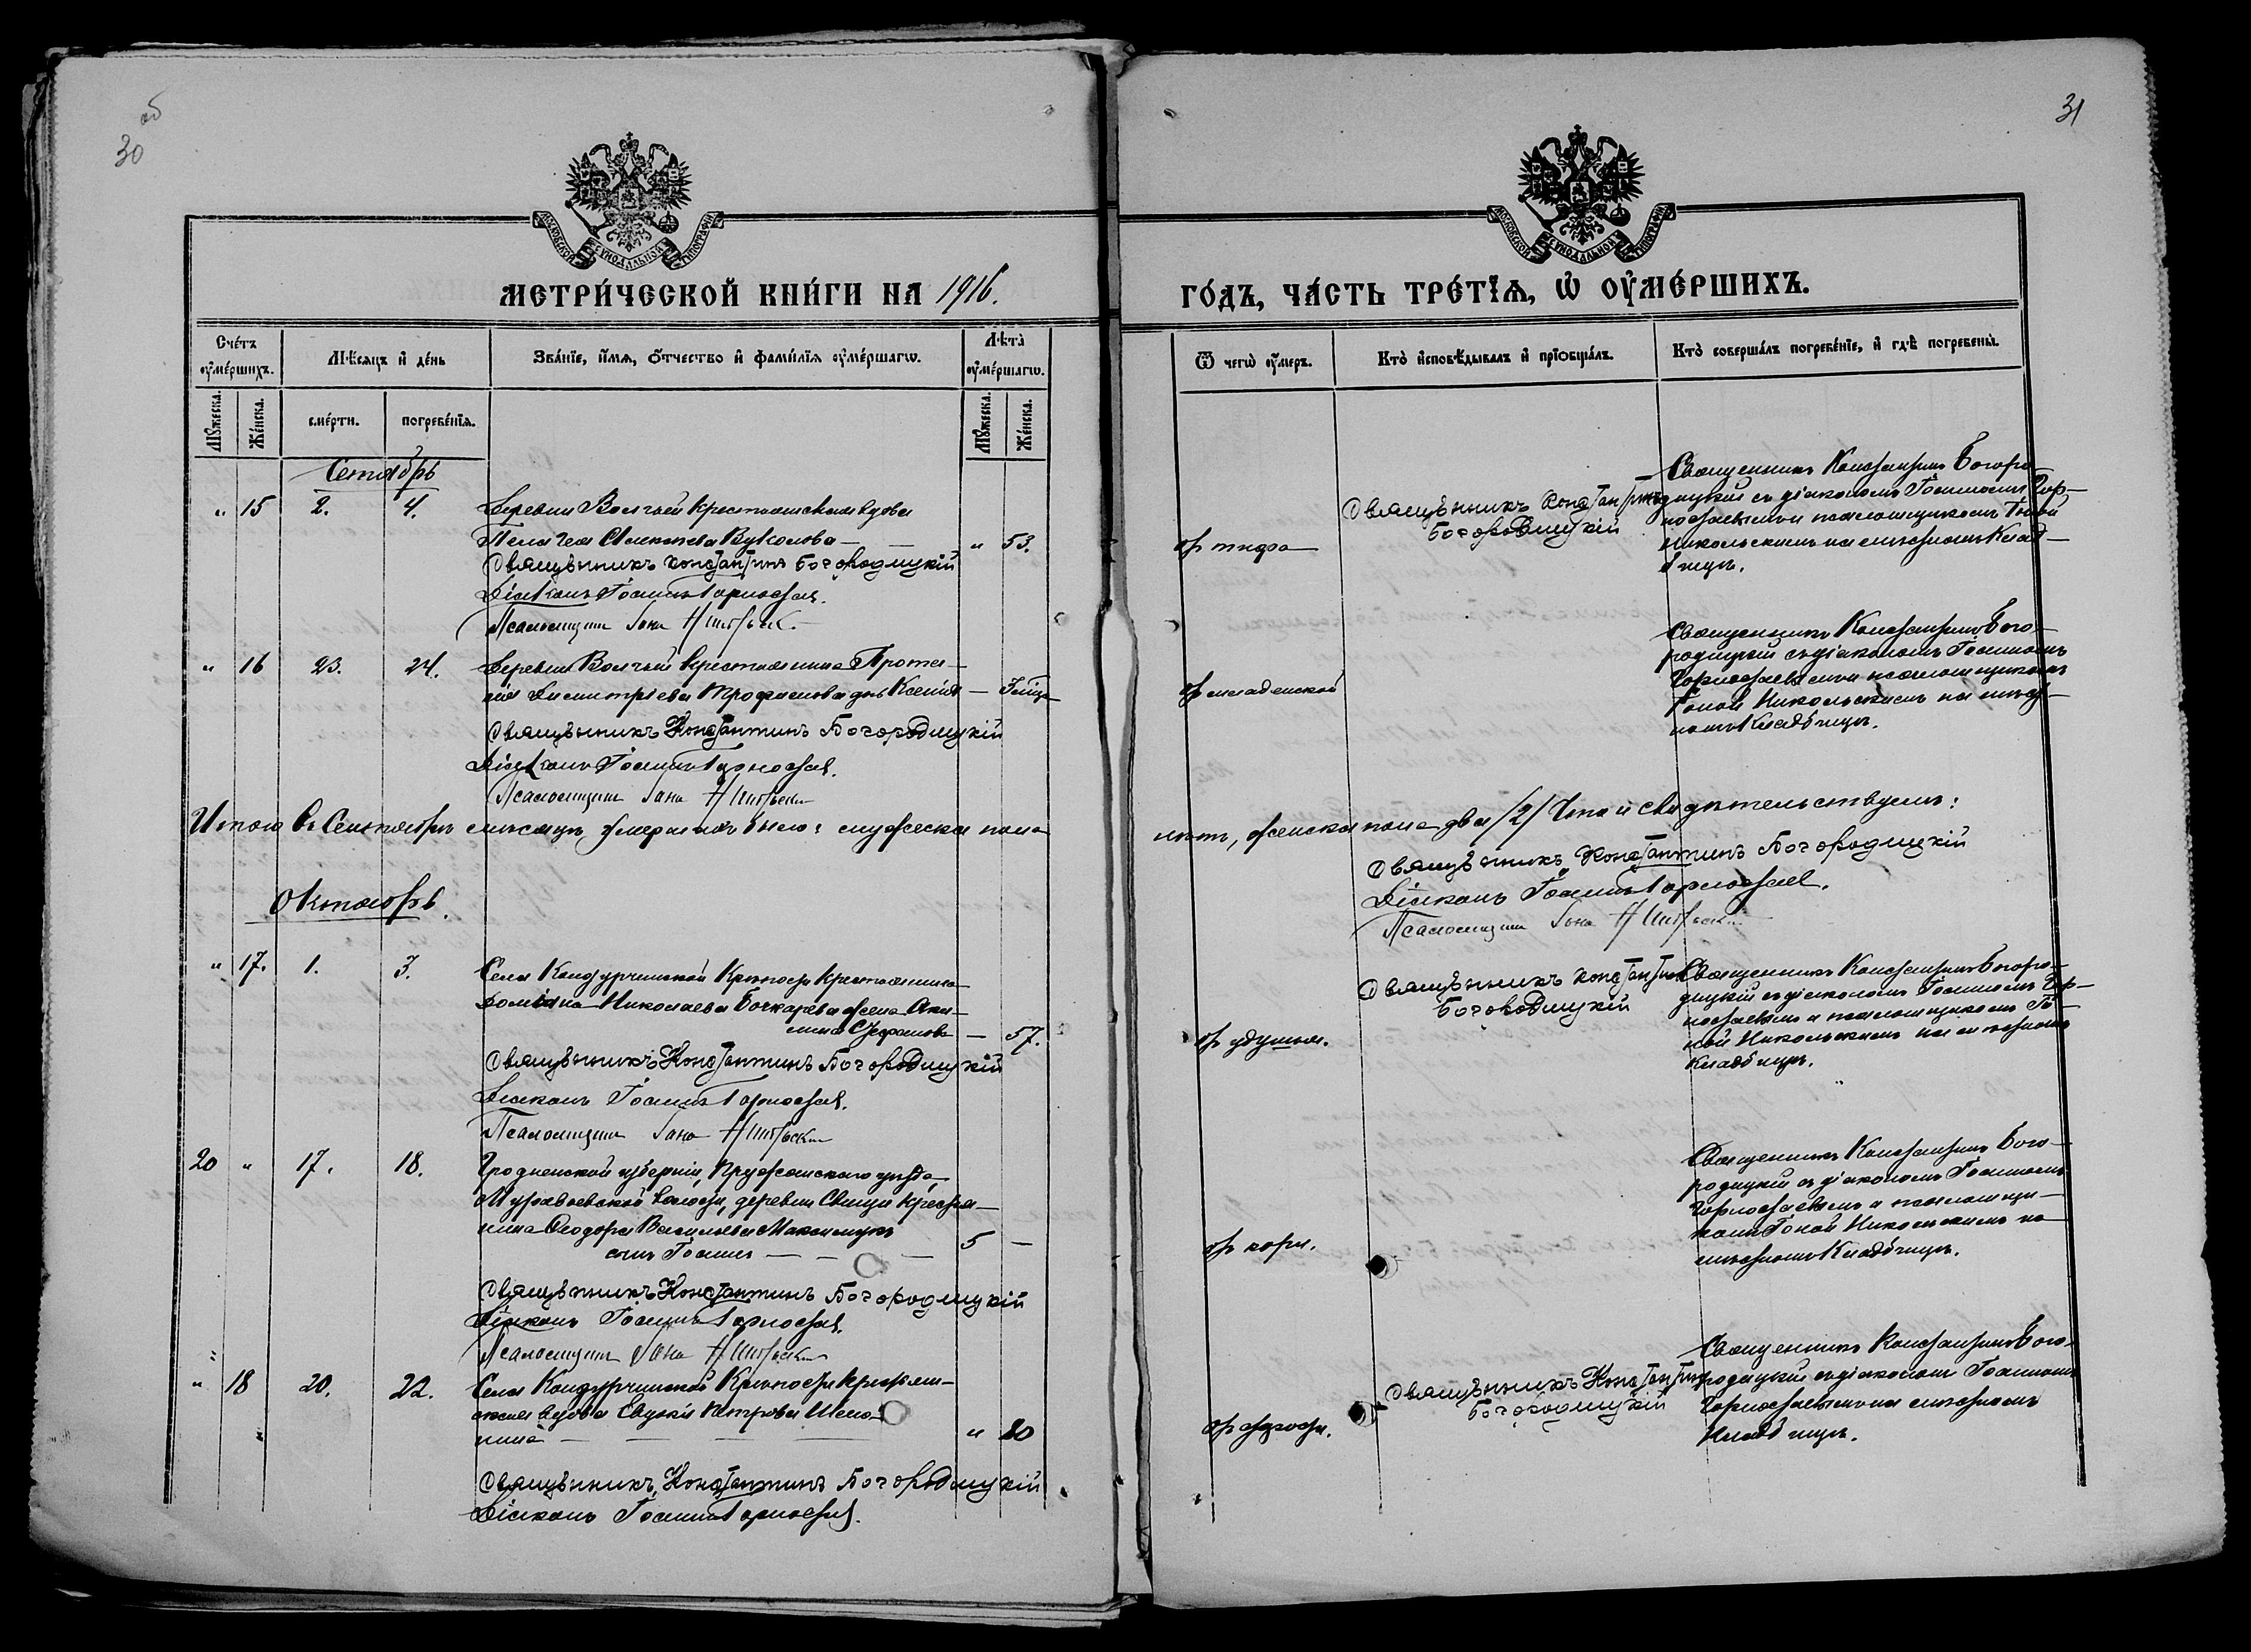 30 об
31
МОСКОВСКОЙ СѴНОДАЛЬНОЙ ТИПОГРАФІИ
МОСКОВСКОЙ СѴНОДАЛЬНОЙ ТИПОГРАФІИ
МЕТРИ́ЧЕСКОЙ КНИ́ГИ НА 1916.
ГО́ДЪ, ЧА́СТЬ ТРЕ́ТЇѦ, Ѡ҆ ОУ҆МЕ́РШИХЪ.
Сче́тъ оу҆ме́ршихъ.
Мѣ́сяцъ и҆ де́нь
Зва́нїе, и҆́мѧ, ѻ҆́тчество и҆ фами́лїѧ оу҆ме́ршагѡ.
Лѣ̀та оу҆ме́ршагѡ.
Ѿ чегѡ̀ оу҆́меръ.
Кто̀ и҆сповѣ́дывалъ и҆ прїѡбща́лъ.
Кто̀ соверша́лъ погребе́нїе, и҆ гдѣ̀ погребены̀.
Мꙋ́жеска.
Же́нска.
сме́рти.
погребе́нїѧ.
Мꙋ́жеска.
Же́нска.
Сентябрь
" 15 2. 4. Деревни Волчьей крестьянская вдова
Пелагея Вуколова — " 53.
Священникъ Константинъ Богородицкій
Діаконъ Іоаннъ Горностаев.
Псаломщикъ Іона Никольск.
от тифа
Священникъ Константинъ
Богородицкій
Священникъ Константинъ Богоро-
дицкій съ діакономъ Іоанномъ Гор-
ностаевым и псаломщикомъ Іоной
Никольскимъ на мѣстномъ Клад-
бищѣ.
" 16 23. 24. Деревни Волчьей крестьянина
Димитріева Трофимова дчь Ксенія —
Священникъ Константинъ Богородицкій
Діаконъ Іоаннъ Горностаев.
Псаломщикъ Іона Никольск
от младенской
Священникъ Константинъ Бого-
родицкій съ діакономъ Іоанномъ
Горностаевым и псаломщикомъ
Іоной Никольскимъ на мѣст-
номъ Кладбищѣ.
Итого въ Сентябрѣ мѣсяцѣ умершихъ было: мужеска пола
нѣтъ, женска пола два /2/ Что и свидѣтельствуемъ:
Священникъ Константинъ Богородицкій
Діаконъ Іоаннъ Горностаев.
Псаломщикъ Іона Никольск
Октябрь.
" 17. 1. 3. Села Кондурчинской Крѣпости крестьянина
Николаева Бочкарева жена Аки-
лина Стефанова — 57.
Священникъ Константинъ Богородицкій
Діаконъ Іоаннъ Горностаев.
Псаломщикъ Іона Никольск
от удушья.
Священникъ Константинъ
Богородицкій
Священникъ Константинъ Богоро-
дицкій съ діакономъ Іоанномъ Гор-
ностаевым и псаломщикомъ Іо-
ной Никольскимъ на мѣстномъ
Кладбищѣ.
20 " 17. 18. Гродненской губерніи, Пружанскаго уѣзда,
волости, деревни крестья-
нина Ѳеодора Васильева Максимука
сынъ Іоаннъ — 5 —
Священникъ Константинъ Богородицкій
Діаконъ Іоаннъ Горностаев.
Псаломщикъ Іона Никольск
от кори.
Священникъ Константинъ Бого-
родицкій съ діакономъ Іоанномъ
Горностаевым и псаломщи-
комъ Іоной Никольскимъ на
мѣстномъ Кладбищѣ.
" 18 20. 22. Села Кондурчинской Крѣпости крестьян-
ская вдова Петрова
" 80
Священникъ Константинъ Богородицкій
Діаконъ Іоаннъ Горностаев.
от старости.
Священникъ Константинъ
Богородицкій
Священникъ Константинъ Бого-
родицкій съ діакономъ Іоанномъ
Горностаевым на мѣстномъ
Кладбищѣ.